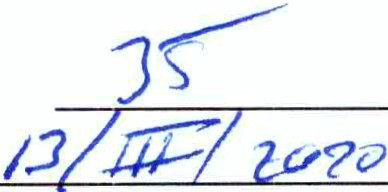 35
13/III/2020